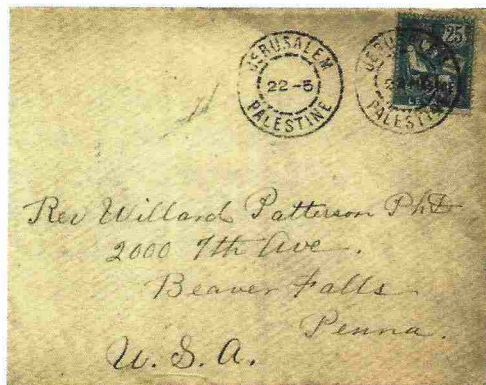 JERUSALEM
22-5
PALESTINE
JERUSALEM
PALESTINE
25
Rev Willard Patterson PhD
2000 7th Ave.
Beaver Falls
Penna.
U.S.A.